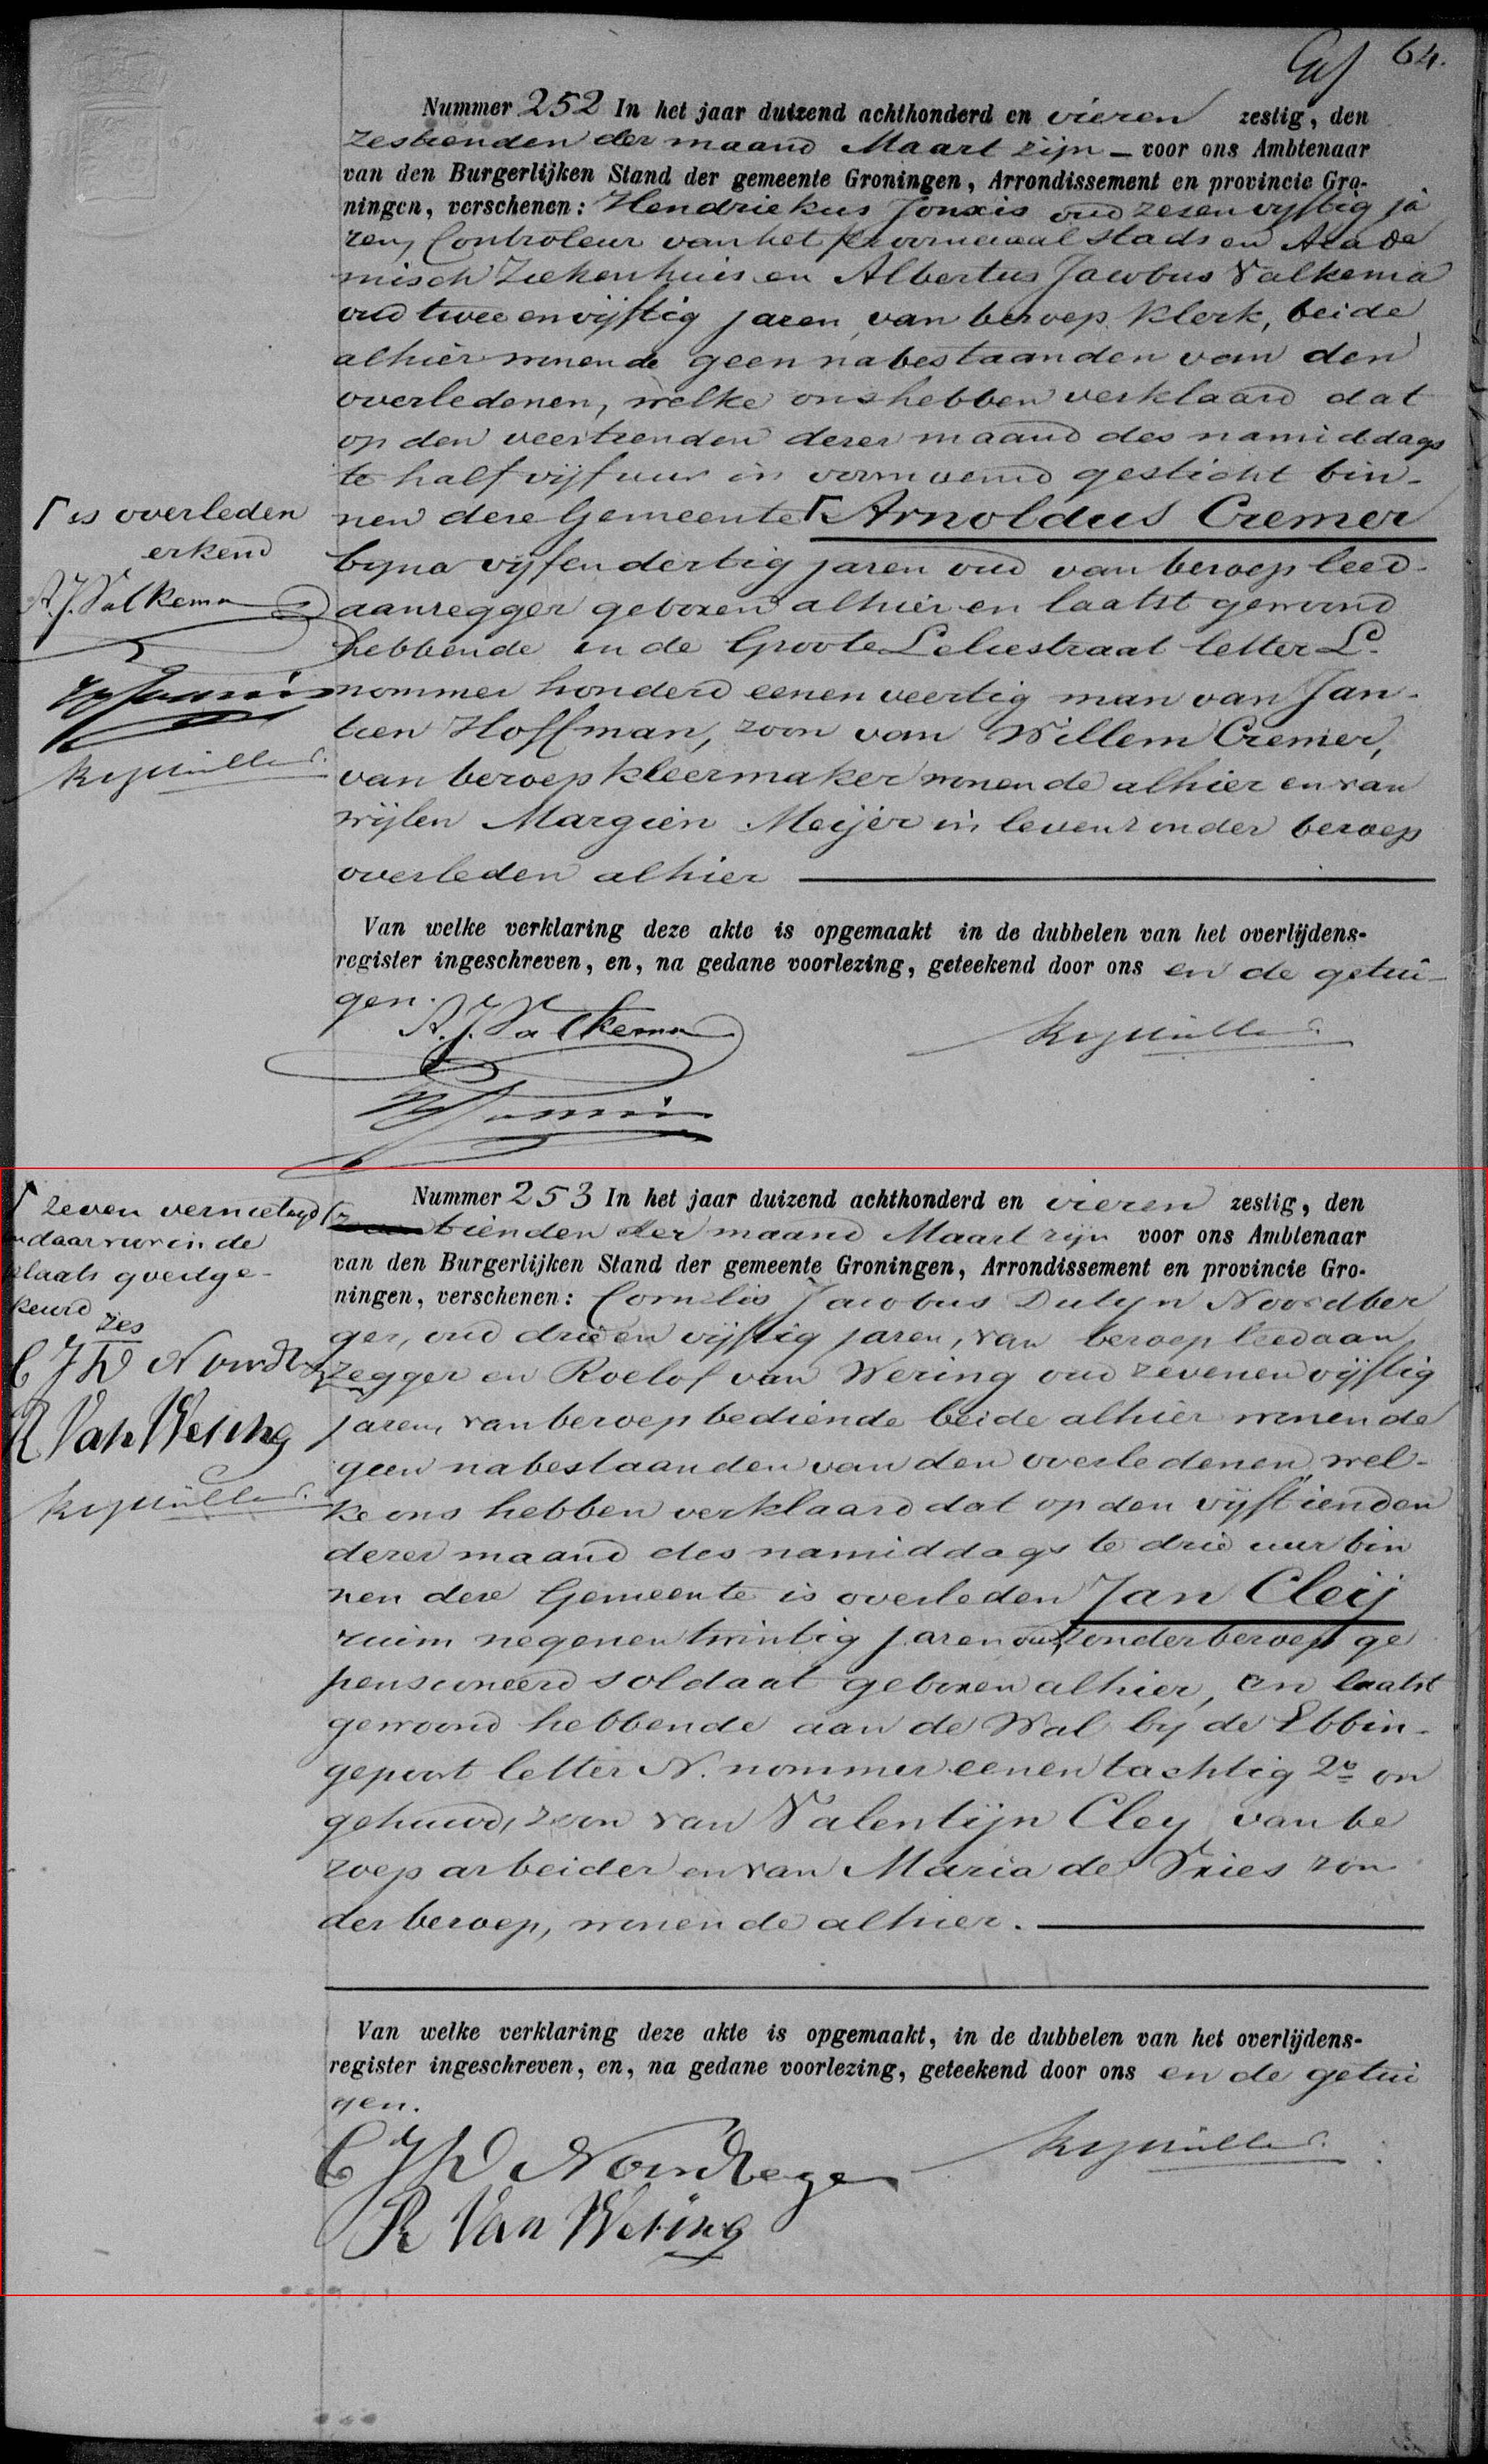 64.
Nummer 252 In het jaar duizend achthonderd en vieren zestig, den
zestienden der maand Maart zijn — voor ons Ambtenaar
van den Burgerlijken Stand der gemeente Groningen, Arrondissement en provincie Gro-
ningen, verschenen: Hendriekus Jonxis oud zesenvyftig ja
ren, Controleur van het Provinciaal stads en Acade
misch Ziekenhuis en Albertus Jacobus Valkema
oud twee en vijftig jaren van beroep klerk, beide
alhier wonende geen nabestaanden van den
overledenen, welke ons hebben verklaard dat
op den veertienden dezer maand des namiddags
te half vijf uur in voornoemd gesticht bin-
nen deze Gemeente ⎡ Arnoldus Cremer
byna vyfendertig jaren oud van beroep leed-
aanzegger geboren alhier en laatst gewoond
hebbende in de Groote Leliestraat letter L.
nommer honderd eenen veertig man van Jan-
tien Hoffman, zoon van Willem Cremer,
van beroep kleermaker wonende alhier en van
wijlen Margien Meijer in leven zonder beroep
overleden alhier
⎡ is overleden
erkend
A. J. Valkema
Van welke verklaring deze akte is opgemaakt in de dubbelen van het overlijdens-
register ingeschreven, en, na gedane voorlezing, geteekend door ons en de getui-
gen.
A. J. Valkema
Nummer 253 In het jaar duizend achthonderd en vieren zestig, den
tienden der maand Maart zijn voor ons Ambtenaar
van den Burgerlijken Stand der gemeente Groningen, Arrondissement en provincie Gro-
ningen, verschenen: Cornelis Jacobus Dutyn Noordber
ger, oud drie en vijftig jaren, van beroep leedaan
zegger en Roelof van Wering oud zevenen vijftig
jaren, van beroep bediende beide alhier wonende
geen nabestaanden van den overledenen, wel-
ke ons hebben verklaard dat op den vijftienden
dezer maand des namiddags te drie uur bin
nen deze Gemeente is overleden Jan Cleij
ruim negenen twintig jaren oud, zonder beroep ge
pensioneerd soldaat geboren alhier, en laatst
gewoond hebbende aan de Wal by de Ebbin-
gepoort letter N. nommer eenen tachtig 2e on
gehuwd, zoon van Valentijn Cley van be
roep arbeider en van Maria de Vries zon
der beroep, wonende alhier.
⎡ zeven vernietigd
en daarvoor in de
plaats goedge-
keurd
zes
C J D Noordb
R Van Wering
Van welke verklaring deze akte is opgemaakt, in de dubbelen van het overlijdens-
register ingeschreven, en, na gedane voorlezing, geteekend door ons en de getui
gen.
C J D Noordberger
R Van Wering